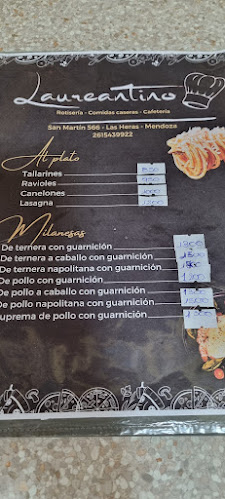 Laureantino
Rotisería - Comidas caseras - Cafetería
San Martín 566 - Las Heras - Mendoza
2615439922
Al plato
Tallarines
Ravioles
Canelones
Lasagna
Milanesas
De ternera con guarnición
De ternera a caballo con guarnición
De ternera napolitana con guarnición
De pollo con guarnición 1200
De pollo a caballo con guarnición
De pollo napolitana con guarnición
uprema de pollo con guarnición